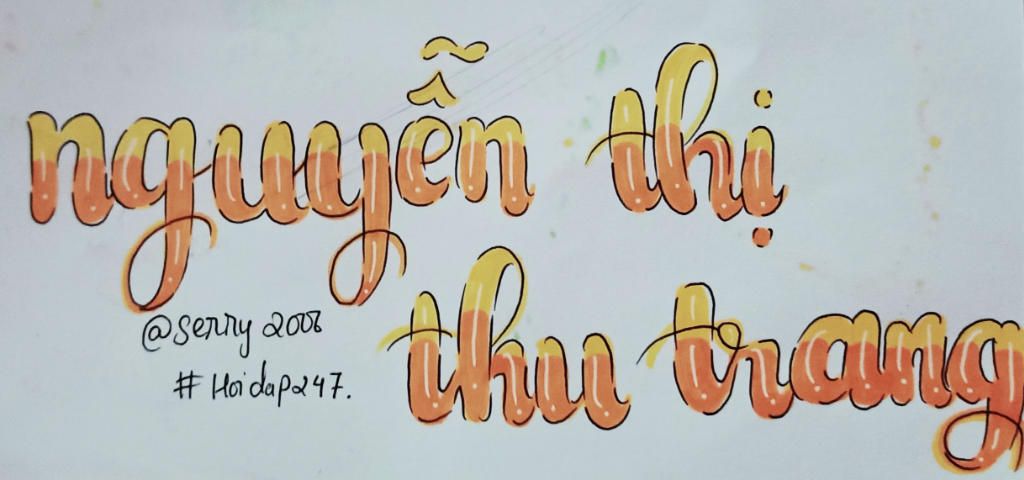 nguyễn thị
thu trang
@serry 2008
#Hoidap247.